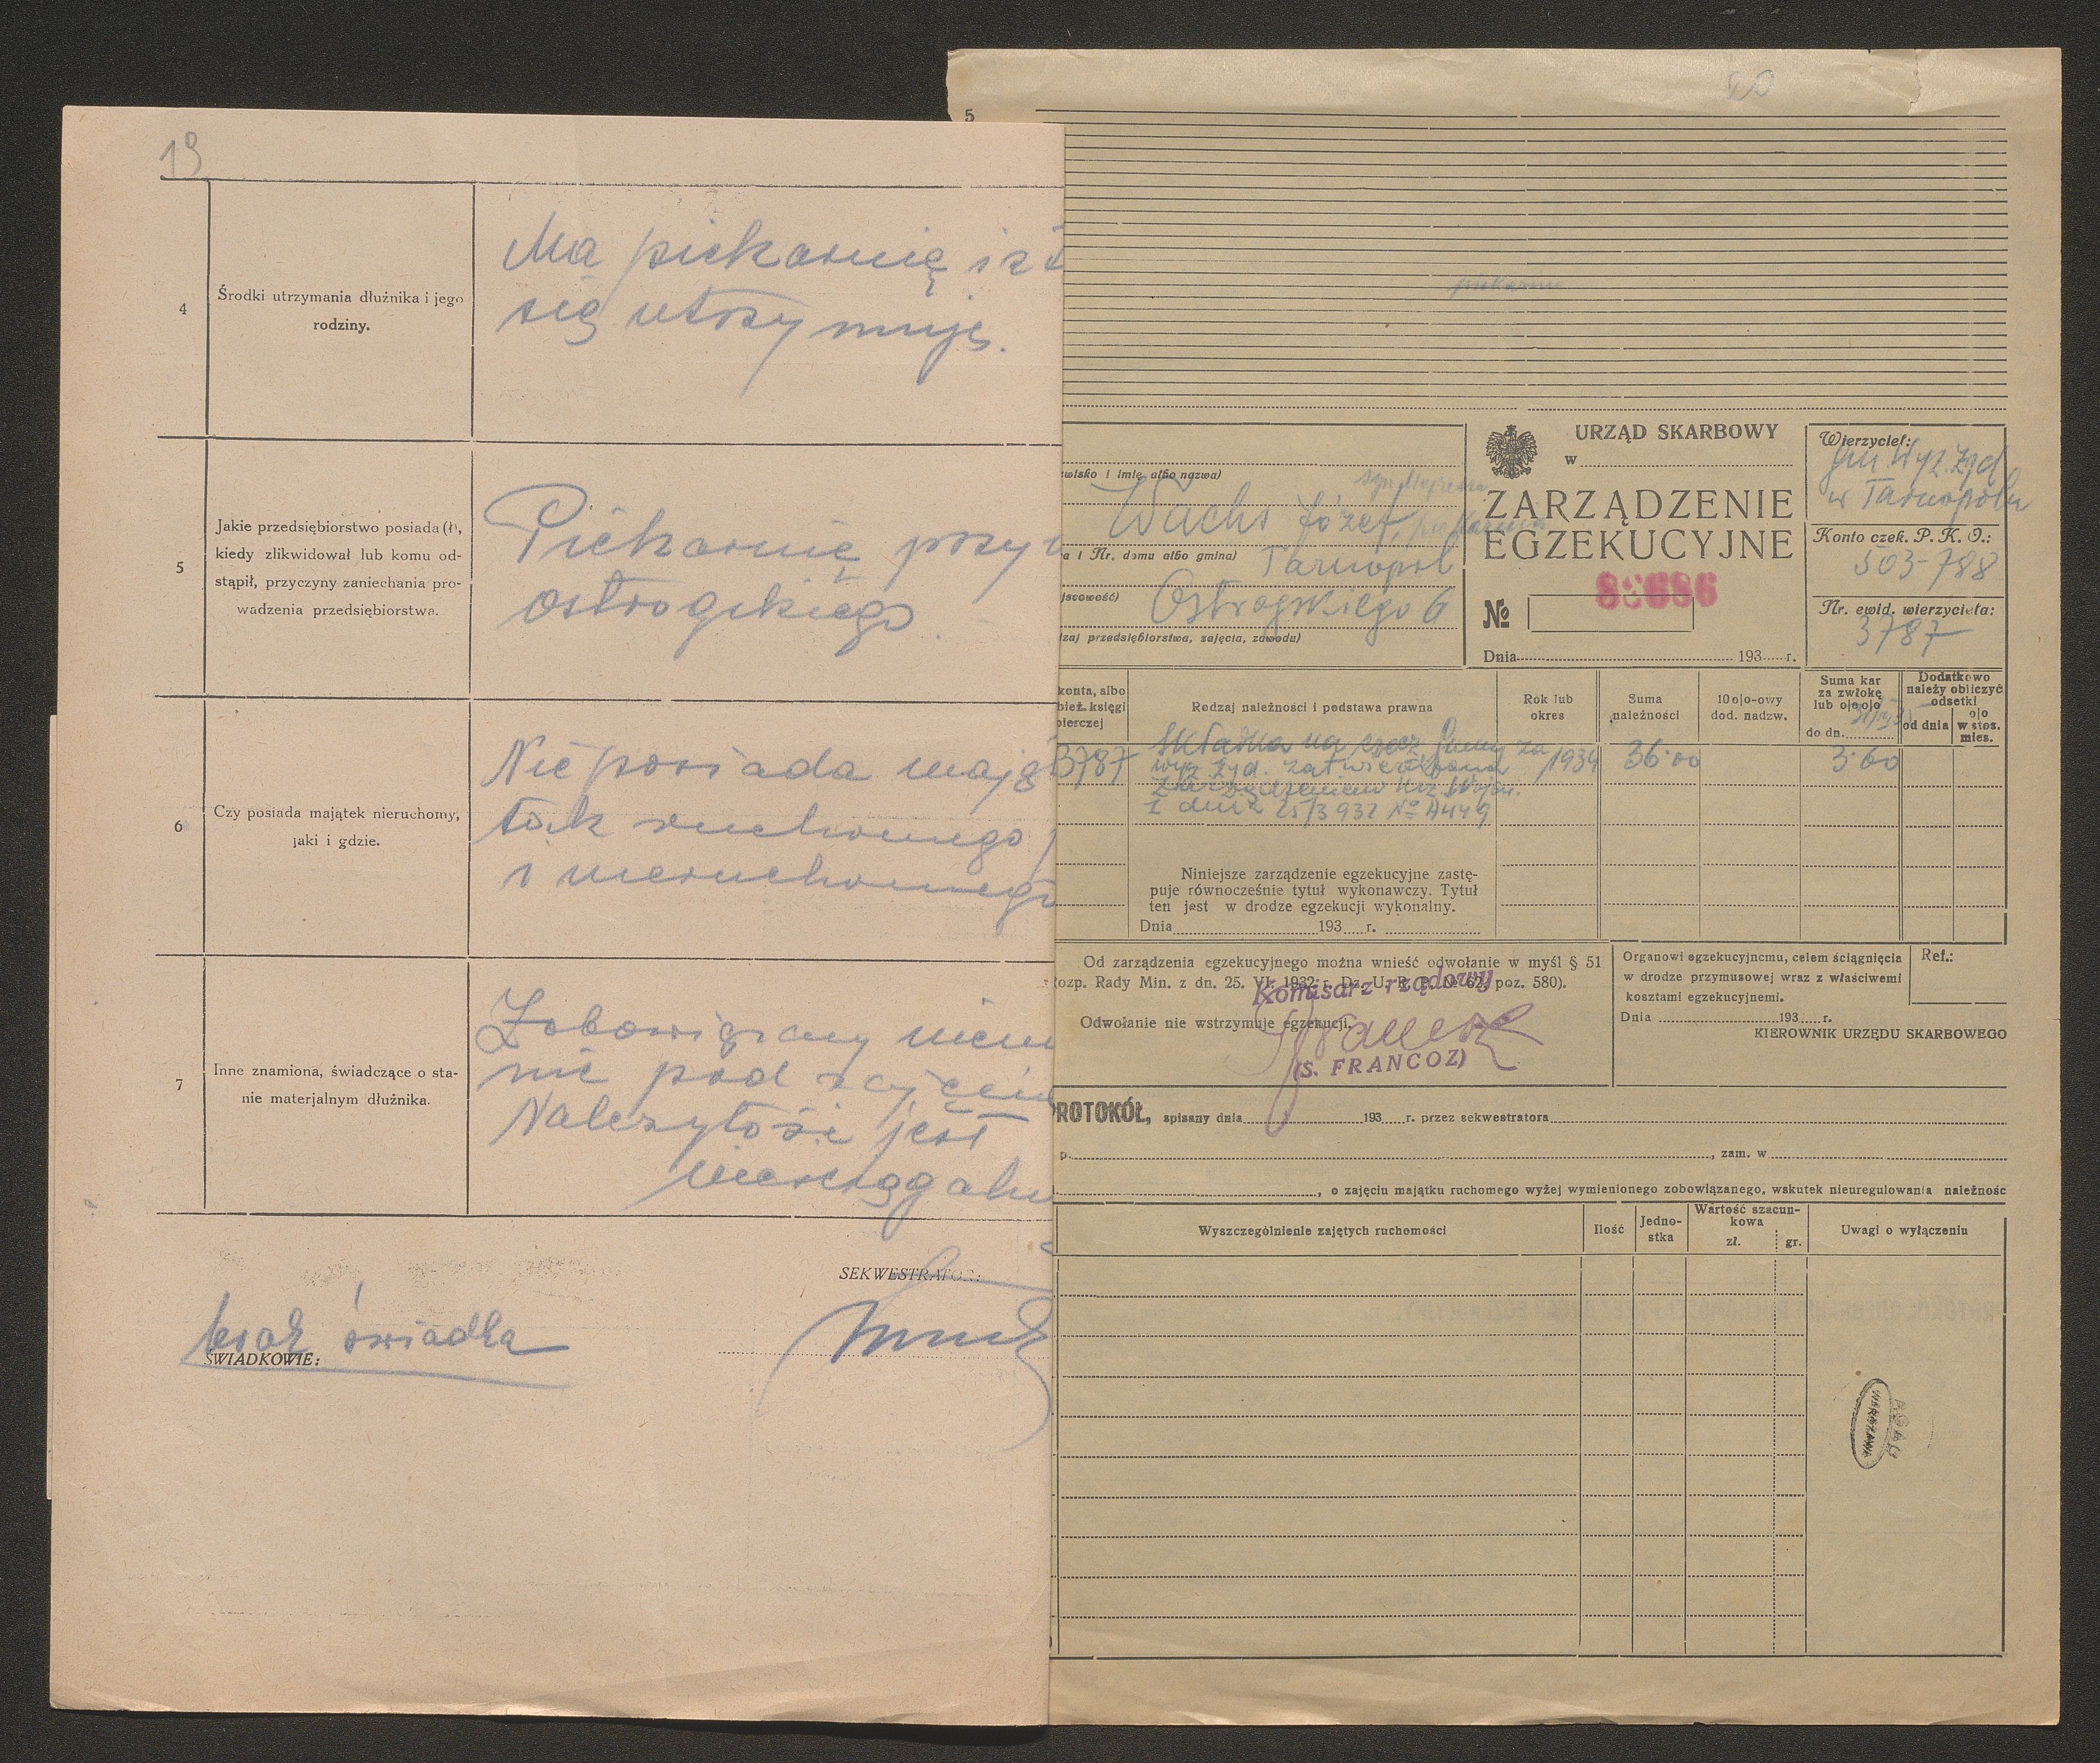 19
4
Środki utrzymania dłużnika i jego
rodziny.
Ma piekarnię i z t
się utrzymuje.
5
Jakie przedsiębiorstwo posiada(ł),
kiedy zlikwidował lub komu od-
stąpił, przyczyny zaniechania pro-
wadzenia przedsiębiorstwa.
Piekarnię przy
Ostrogskiego
6
Czy posiada majątek nieruchomy,
jaki i gdzie.
Nie posiada mają
tak ruchomego
i nieruchomego
7
Inne znamiona, świadczące o sta-
nie materjalnym dłużnika.
Zobowiązany niem
nic pod zajęcie
Należytość jest
nieściągaln
SEKWESTRATOR:
brak świadka
ŚWIADKOWIE:
5
piekarnia
wisko i imię albo nazwa)
Wuchs Józef, piekarnia
a i Nr. domu albo gmina)
Tarnopol
jscowość)
Ostrogskiego 6
zaj przedsiębiorstwa, zajęcia, zawodu)
URZĄD SKARBOWY
w
ZARZĄDZENIE
EGZEKUCYJNE
88686
№
Dnia 193 r.
Wierzyciel:
Gm. Wyz. Żyd
w Tarnopolu
Konto czek. P. K. O.:
503-788
Nr. ewid. wierzyciela:
3787
konta, albo
bież. księgi
bierczej
Rodzaj należności i podstawa prawna
Rok lub
okres
Suma
należności
10 o/o-owy
dod. nadzw.
Suma kar
za zwłokę
lub o/o o/o
do dn.
Dodatkowo
należy obliczyć
odsetki
od dnia
o/o
w stos.
mies.
3787
Składka na rzecz Gminy za
wyz żyd. zatwierdzona
Zarządzeniem Urz. Wojew.
z dnia 25/3 932 № A449
1934
36·00
3·60
Niniejsze zarządzenie egzekucyjne zastę-
puje równocześnie tytuł wykonawczy. Tytuł
ten jest w drodze egzekucji wykonalny.
Dnia 193 r.
Od zarządzenia egzekucyjnego można wnieść odwołanie w myśl § 51
Rozp. Rady Min. z dn. 25. VI. 1932 r. Dz. U. R. P. № 62, poz. 580).
Komisarz rządowy
Odwołanie nie wstrzymuje egzekucji.
(S. FRANCOZ)
Organowi egzekucyjnemu, celem ściągnięcia
w drodze przymusowej wraz z właściwemi
kosztami egzekucyjnemi.
Dnia 193 r.
Ref.:
KIEROWNIK URZĘDU SKARBOWEGO
PROTOKÓŁ, spisany dnia 193 r. przez sekwestratora
p. , zam. w
, o zajęciu majątku ruchomego wyżej wymienionego zobowiązanego, wskutek nieuregulowania należnośc
Wyszczególnienie zajętych ruchomości
Ilość
Jedno-
stka
Wartość szacun-
kowa
zł.
gr.
Uwagi o wyłączeniu
WARSZAWA